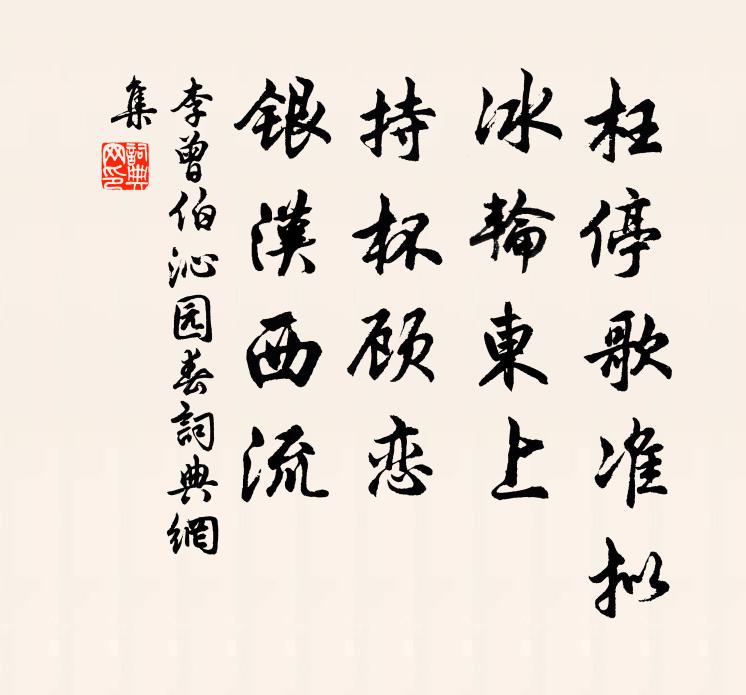 枉停歌准拟
冰輪東上
持杯顾恋
銀漢西流
李曾伯沁园春詞典網
集
詞典網印